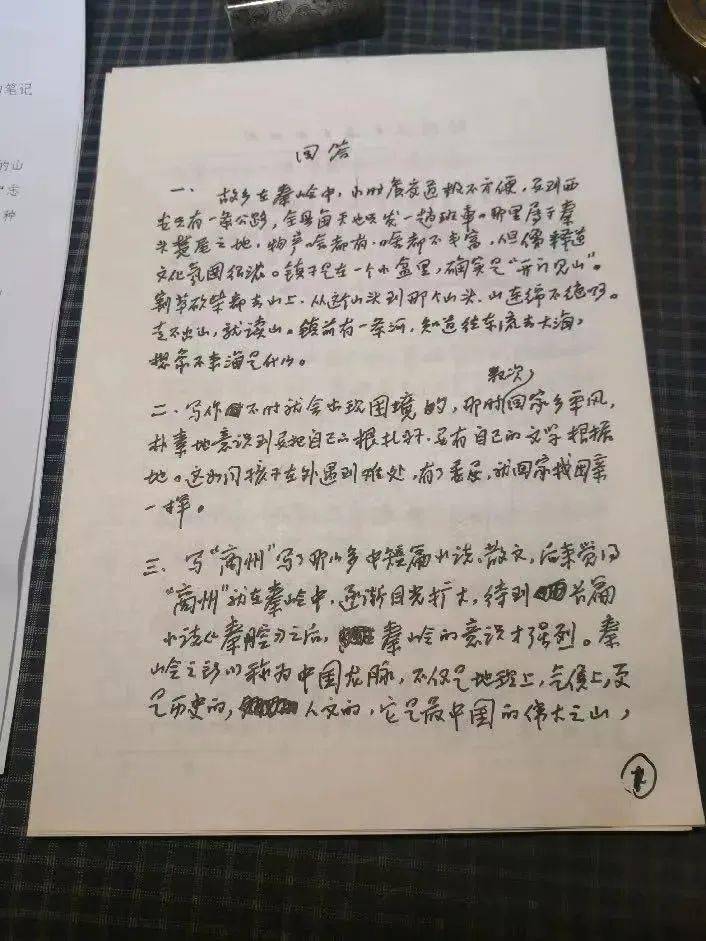 回答
一、故乡在秦岭中，小时候交通极不方便，要到西
安只有一条公路，全县每天也只发一趟班車。那里属于秦
头楚尾之地，物产啥都有，啥都不丰富，但儒释道
文化氛围很浓。镇子是在一个小盆里，确实是“开门见山”。
割草砍柴都去山上，从这个山头到那个山头，山连绵不绝呀。
走不出山，就读山。镇前有一条河，知道往东流去大海，
想象不来海是什么。
二、写作不时就会出现困境的，那时数次回家乡采风，
朴素地意识到要把自己的根扎牢，要有自己的文学根据
地。这如同孩子在外遇到难处，有了委屈，就回家找母亲
一样。
三、写“商州”写了那么多中短篇小说、散文，后来觉得
“商州”就在秦岭中，逐渐目光扩大，待到长篇
小说《秦腔》之后，秦岭的意识才强烈。秦
岭之所以称为中国龙脉，不仅是地理上，气候上，更
是历史的，人文的，它是最中国的伟大之山，
1
笔记
的山
种